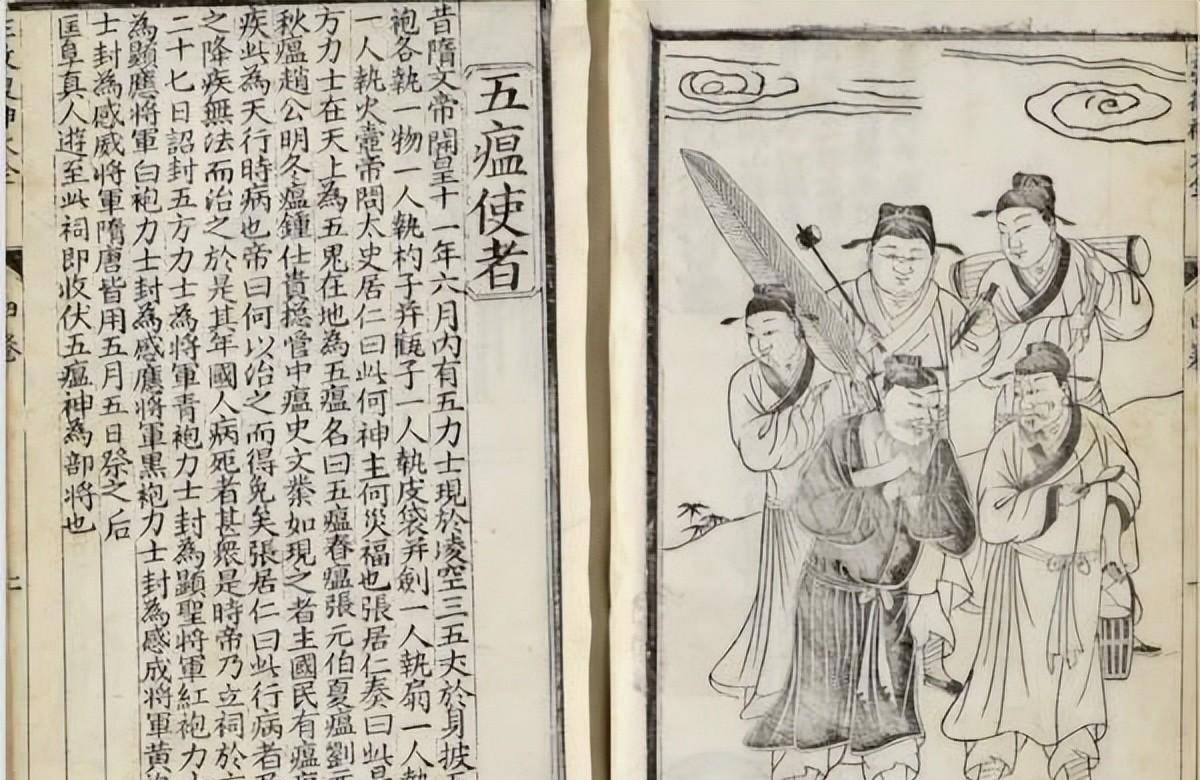 五瘟使者
昔隋文帝開皇十一年六月內有五力士現於凌空三五丈於身披
袍各執一物一人執杓子并罐子一人執皮袋并劍一人執扇一人執
一人執火壺帝問太史居仁曰此何神主何災福也張居仁奏曰此是
方力士在天上為五鬼在地為五瘟名曰五瘟春瘟張元伯夏瘟劉元
秋瘟趙公明冬瘟鍾仕貴揔管中瘟史文業如現之者主國民有瘟
疾此為天行時病也帝曰何以治之而得免矣張居仁曰此行病者
之降疾無法而治之於是其年國人病死者甚衆是時帝乃立祠於
二十七日詔封五方力士為將軍青袍力士封為顯聖將軍紅袍力
為顯應將軍白袍力士封為感應將軍黑袍力士封為感成將軍黃
士封為感威將軍隋唐皆用五月五日祭之后
匡阜真人遊至此祠即收伏五瘟神為部將也